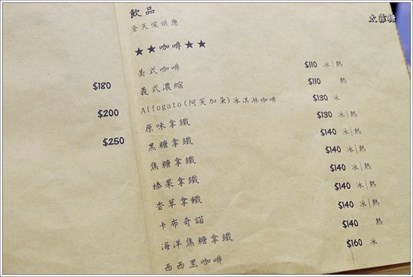 飲品
全天候供應
★★咖啡★★
美式咖啡 $110 冰|熱
義式濃縮 $110 熱
Affogato(阿芙加朵)冰淇淋咖啡 $130 冰
原味拿鐵 $130 冰|熱
黑糖拿鐵 $140 冰|熱
焦糖拿鐵 $140 冰|熱
榛果拿鐵 $140 冰|熱
香草拿鐵 $140 冰|熱
卡布奇諾 $140 熱
海洋焦糖拿鐵 $140 冰|熱
西西里咖啡 $160 冰
$180
$200
$250